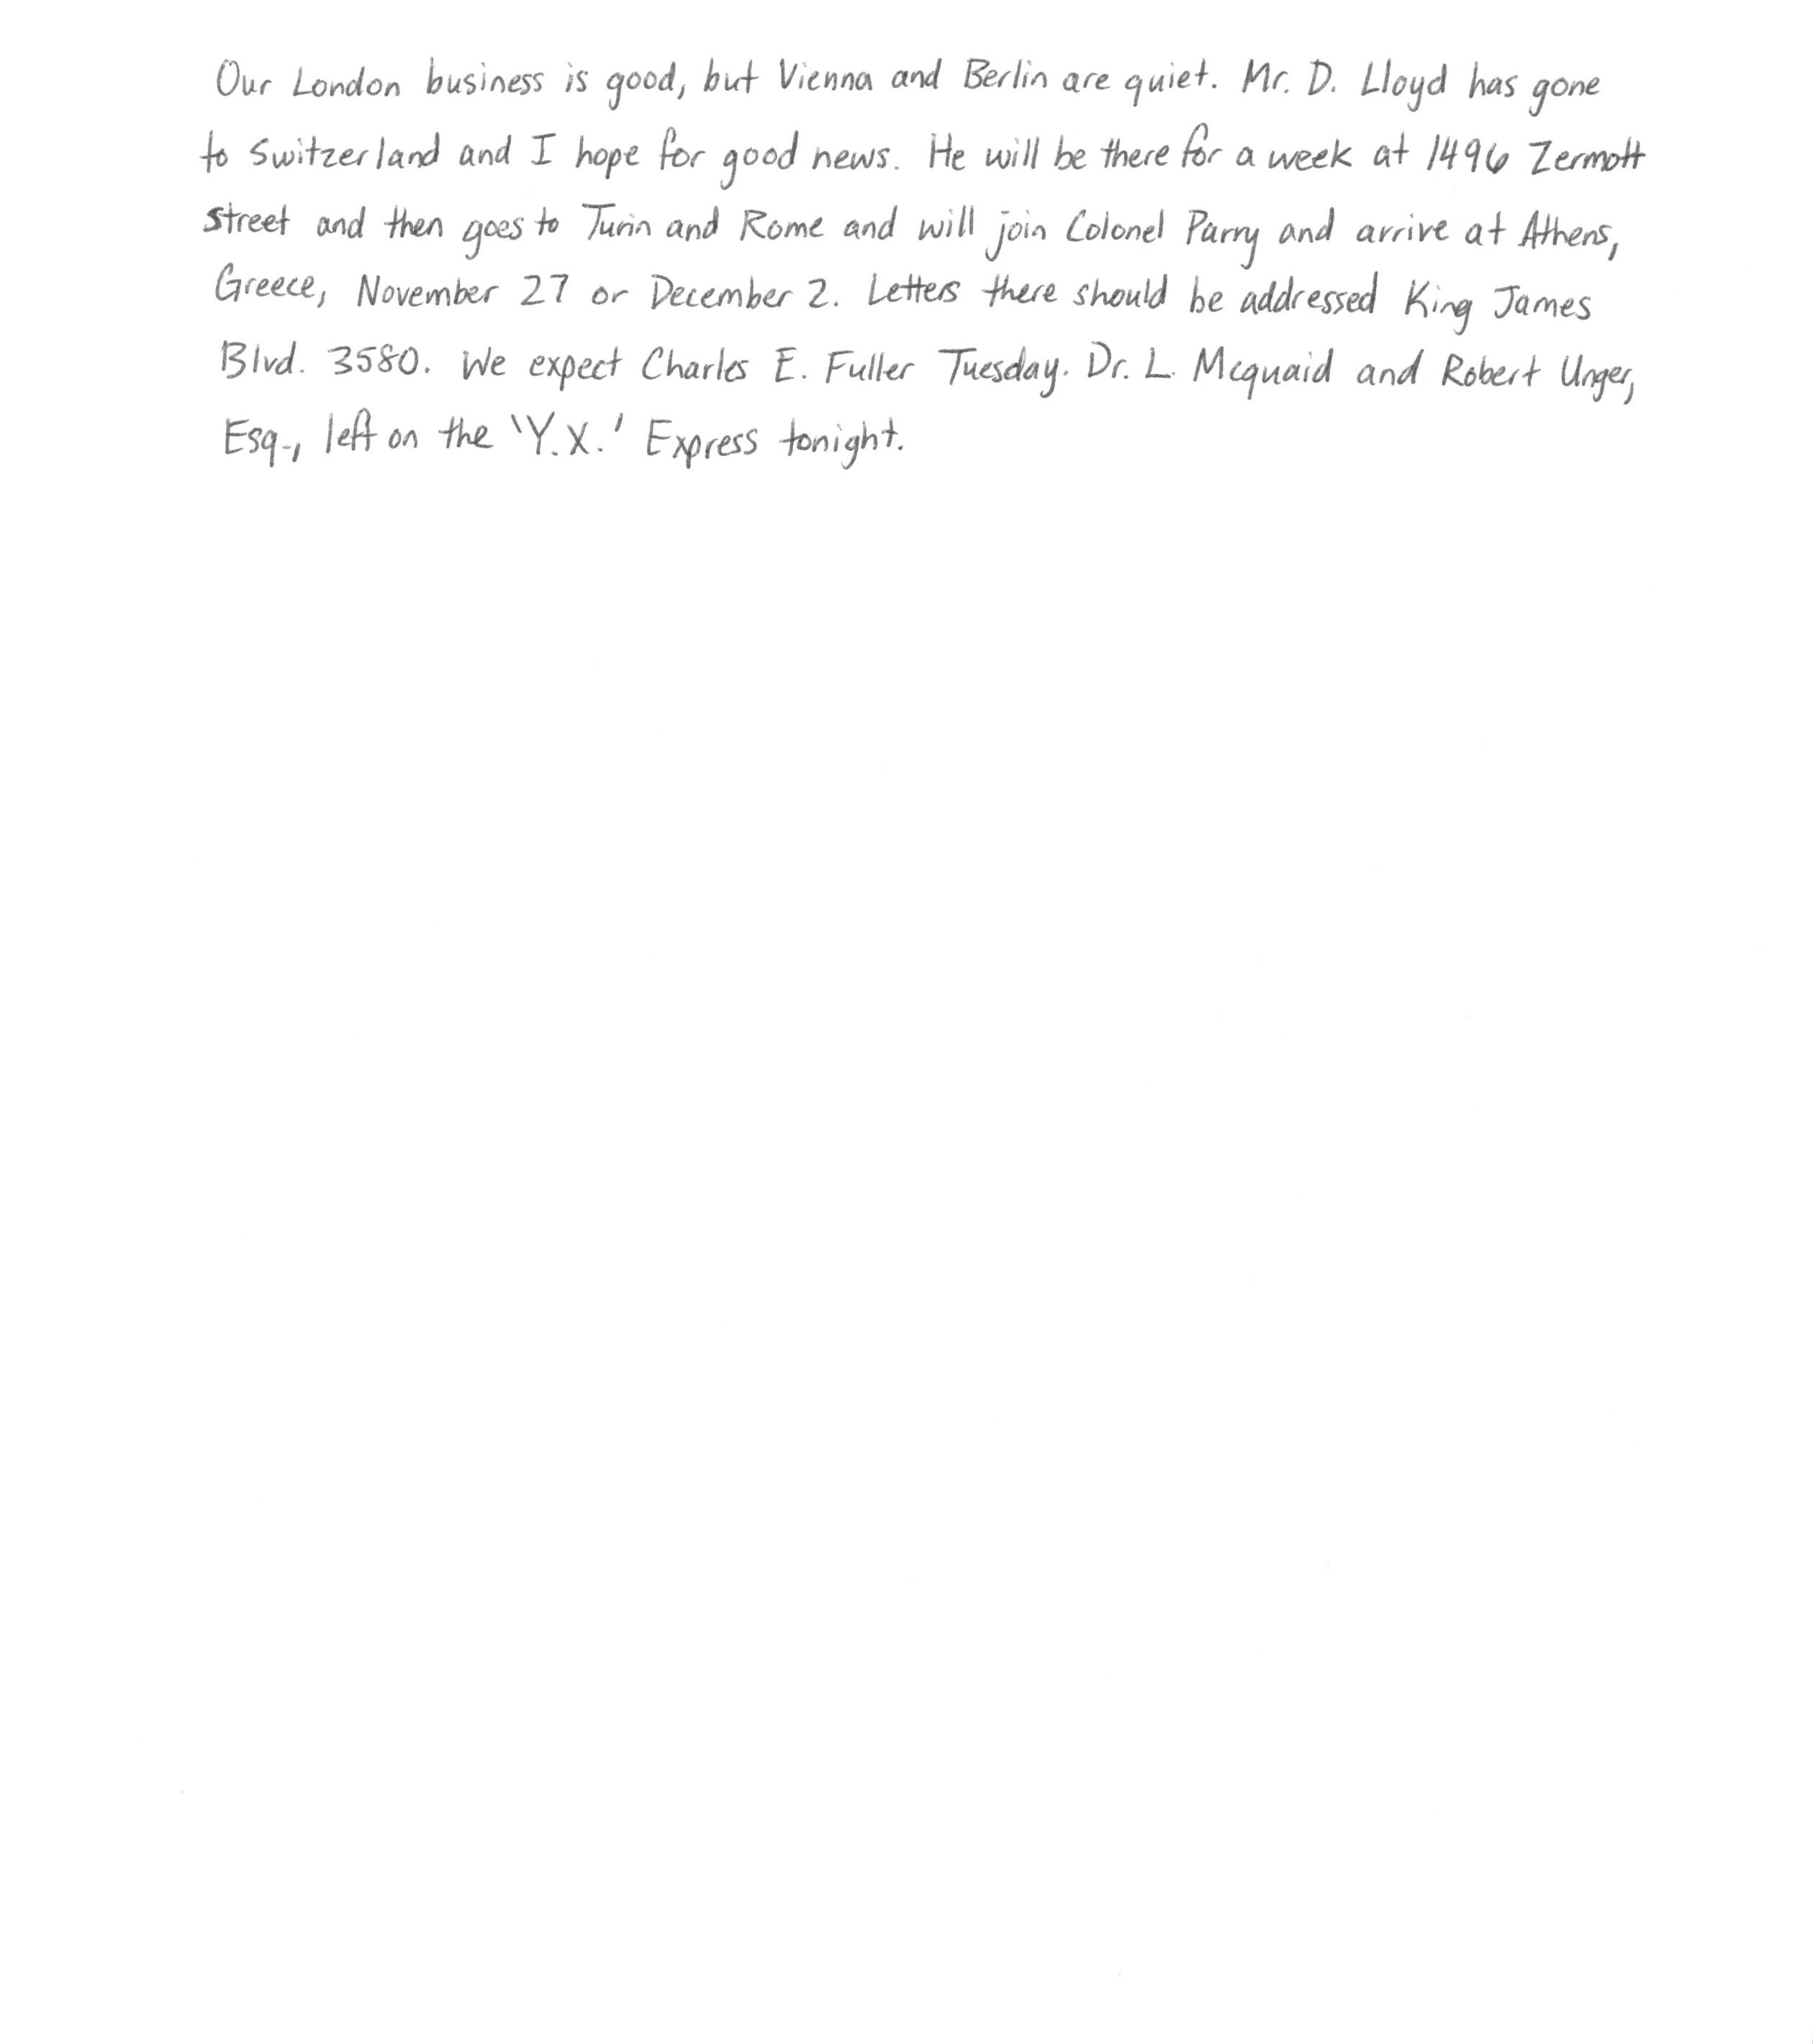 Our London business is good, but Vienna and Berlin are quiet. Mr. D. Lloyd has gone
to Switzerland and I hope for good news. He will be there for a week at 1496 Zermott
street and then goes to Turin and Rome and will join Colonel Parry and arrive at Athens,
Greece, November 27 or December 2. Letters there should be addressed King James
Blvd. 3580. We expect Charles E. Fuller Tuesday. Dr. L. Mcquaid and Robert Unger,
Esq., left on the 'Y.X.' Express tonight.